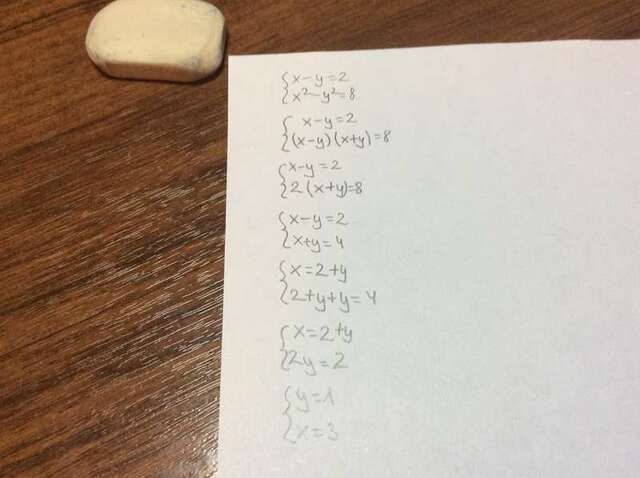 x-y=2
x²-y²=8
x-y=2
(x-y)(x+y)=8
x-y=2
2(x+y)=8
x-y=2
x+y=4
x=2+y
2+y+y=4
x=2+y
2y=2
y=1
x=3